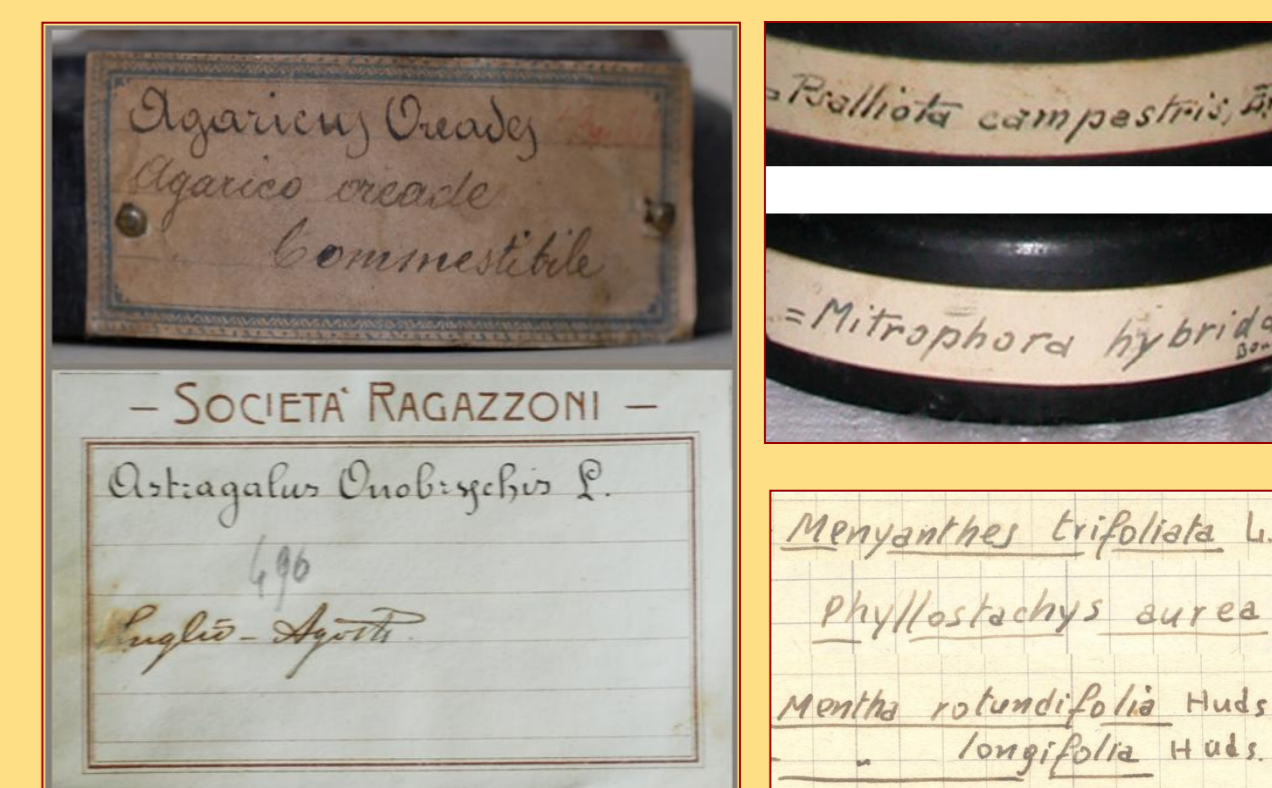 Agaricus Oreades
Agarico oreade
Commestibile
– SOCIETA' RAGAZZONI –
Astragalus Onobrychis L.
496
Luglio - Agosto
= Psalliota campestris,
= Mitrophora hybrida
Menyanthes trifoliata L.
Phyllostachys aurea
Mentha rotundifolia Huds
- " longifolia Huds.